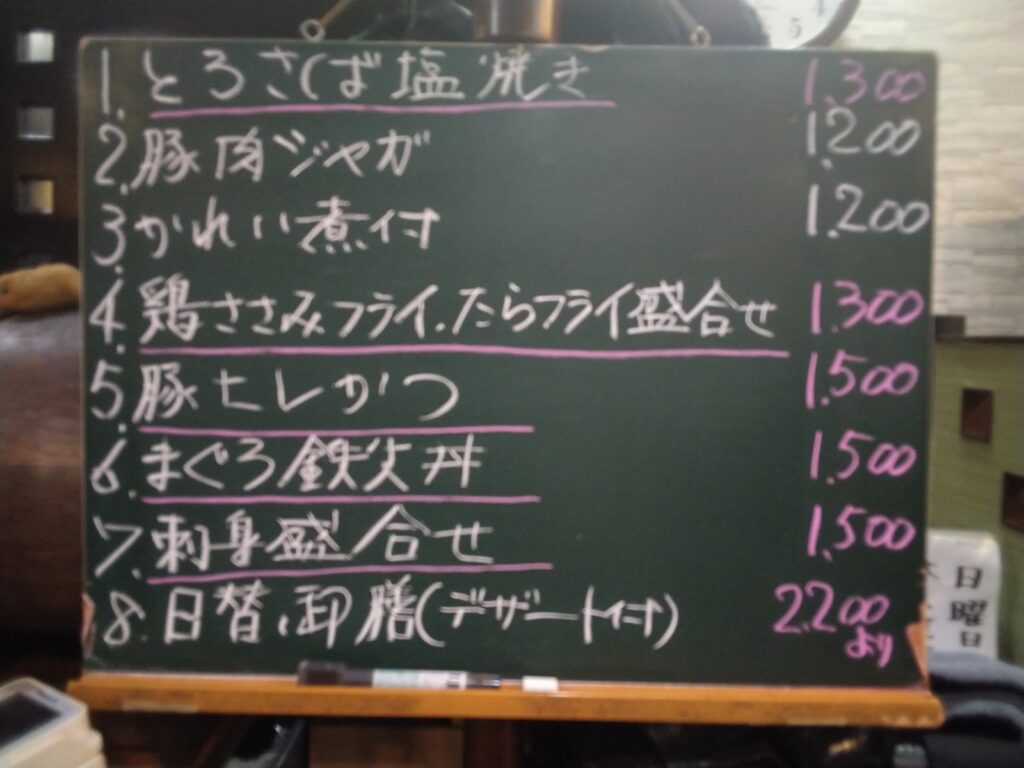 1. とろさば塩焼き 1.300
2. 豚肉ジャガ 1.200
3. かれい煮付 1.200
4. 鶏ささみフライ.たらフライ盛合せ 1.300
5. 豚ヒレかつ 1.500
6. まぐろ鉄火丼 1.500
7. 刺身盛合せ 1.500
8. 日替り御膳(デザート付) 2.200
より
日
曜
日
5